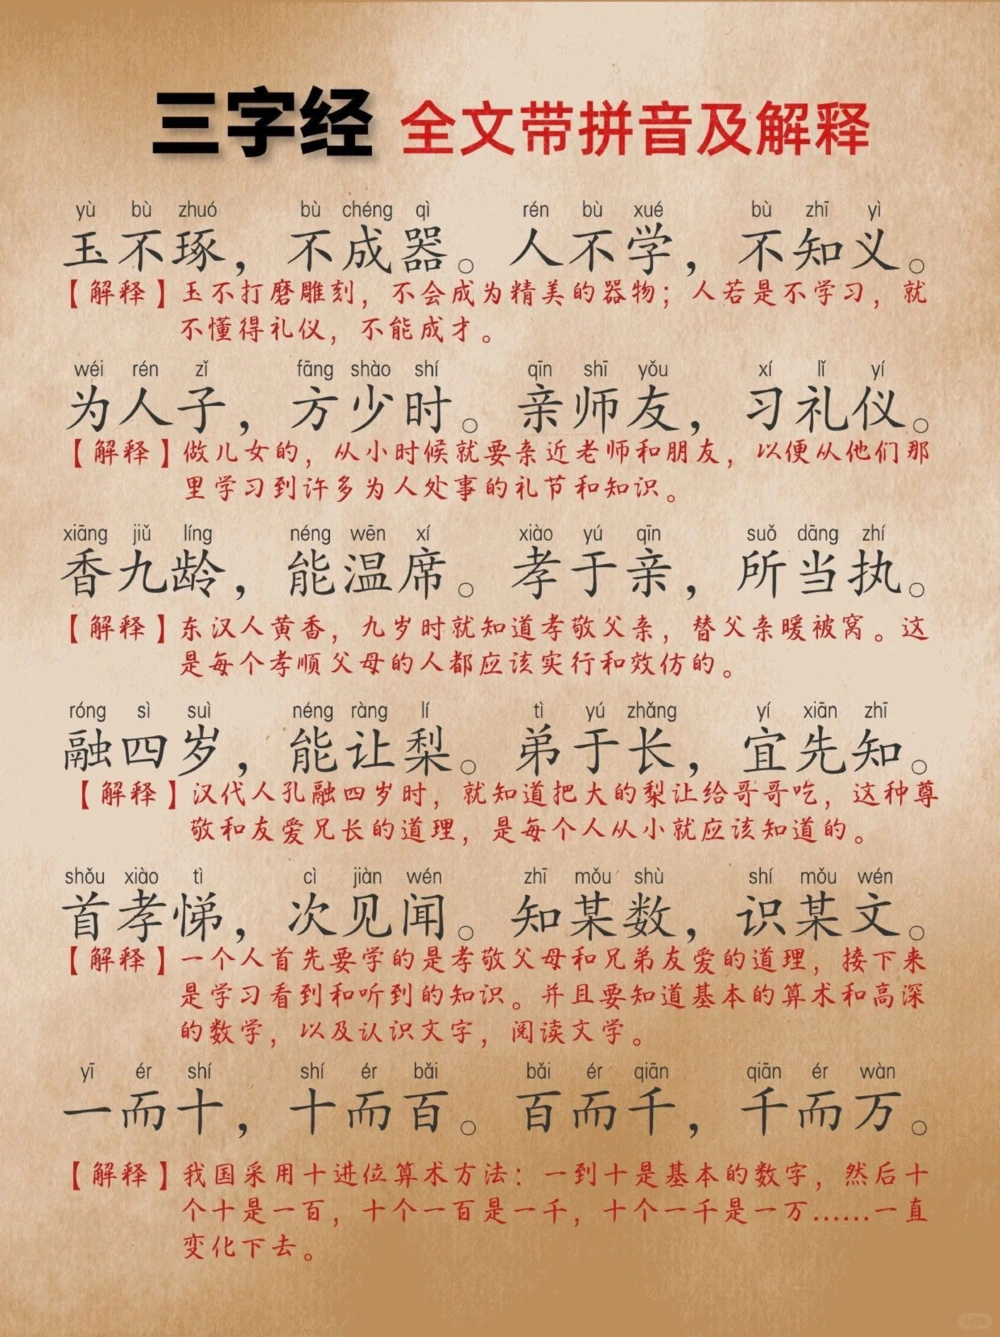 三字经 全文带拼音及解释
yù bù zhuó bù chéng qì rén bù xué bù zhī yì
玉不琢，不成器。人不学，不知义。
【解释】玉不打磨雕刻，不会成为精美的器物；人若是不学习，就
不懂得礼仪，不能成才。
wéi rén zǐ fāng shào shí qīn shī yǒu xí lǐ yí
为人子，方少时。亲师友，习礼仪。
【解释】做儿女的，从小时候就要亲近老师和朋友，以便从他们那
里学习到许多为人处事的礼节和知识。
xiāng jiǔ líng néng wēn xí xiào yú qīn suǒ dāng zhí
香九龄，能温席。孝于亲，所当执。
【解释】东汉人黄香，九岁时就知道孝敬父亲，替父亲暖被窝。这
是每个孝顺父母的人都应该实行和效仿的。
róng sì suì néng ràng lí tì yú zhǎng yí xiān zhī
融四岁，能让梨。弟于长，宜先知。
【解释】汉代人孔融四岁时，就知道把大的梨让给哥哥吃，这种尊
敬和友爱兄长的道理，是每个人从小就应该知道的。
shǒu xiào tì cì jiàn wén zhī mǒu shù shí mǒu wén
首孝悌，次见闻。知某数，识某文。
【解释】一个人首先要学的是孝敬父母和兄弟友爱的道理，接下来
是学习看到和听到的知识。并且要知道基本的算术和高深
的数学，以及认识文字，阅读文学。
yī ér shí shí ér bǎi bǎi ér qiān qiān ér wàn
一而十，十而百。百而千，千而万。
【解释】我国采用十进位算术方法：一到十是基本的数字，然后十
个十是一百，十个一百是一千，十个一千是一万……一直
变化下去。